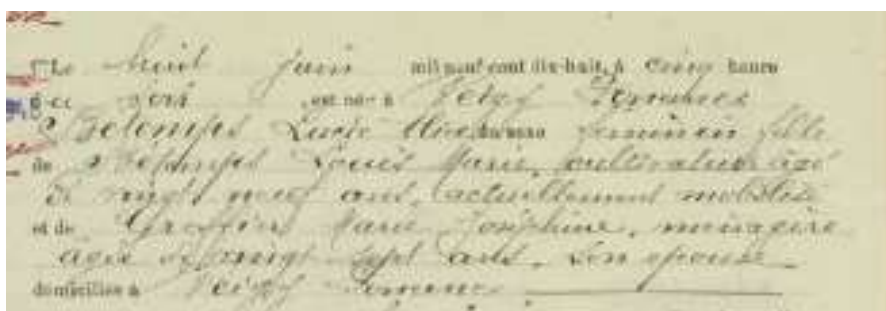 Le huit juin mil neuf cent dix-huit, à cinq heure
du soir est née à Veigy Foncenex
Betemps Lucie du sexe féminin fille
de Betemps Louis Marie, cultivateur âgé
de vingt neuf ans, actuellement mobilisé
et de Marie Joséphine, ménagère
agée de vingt sept ans, son épouse
domiciliés à Veigy Foncenex